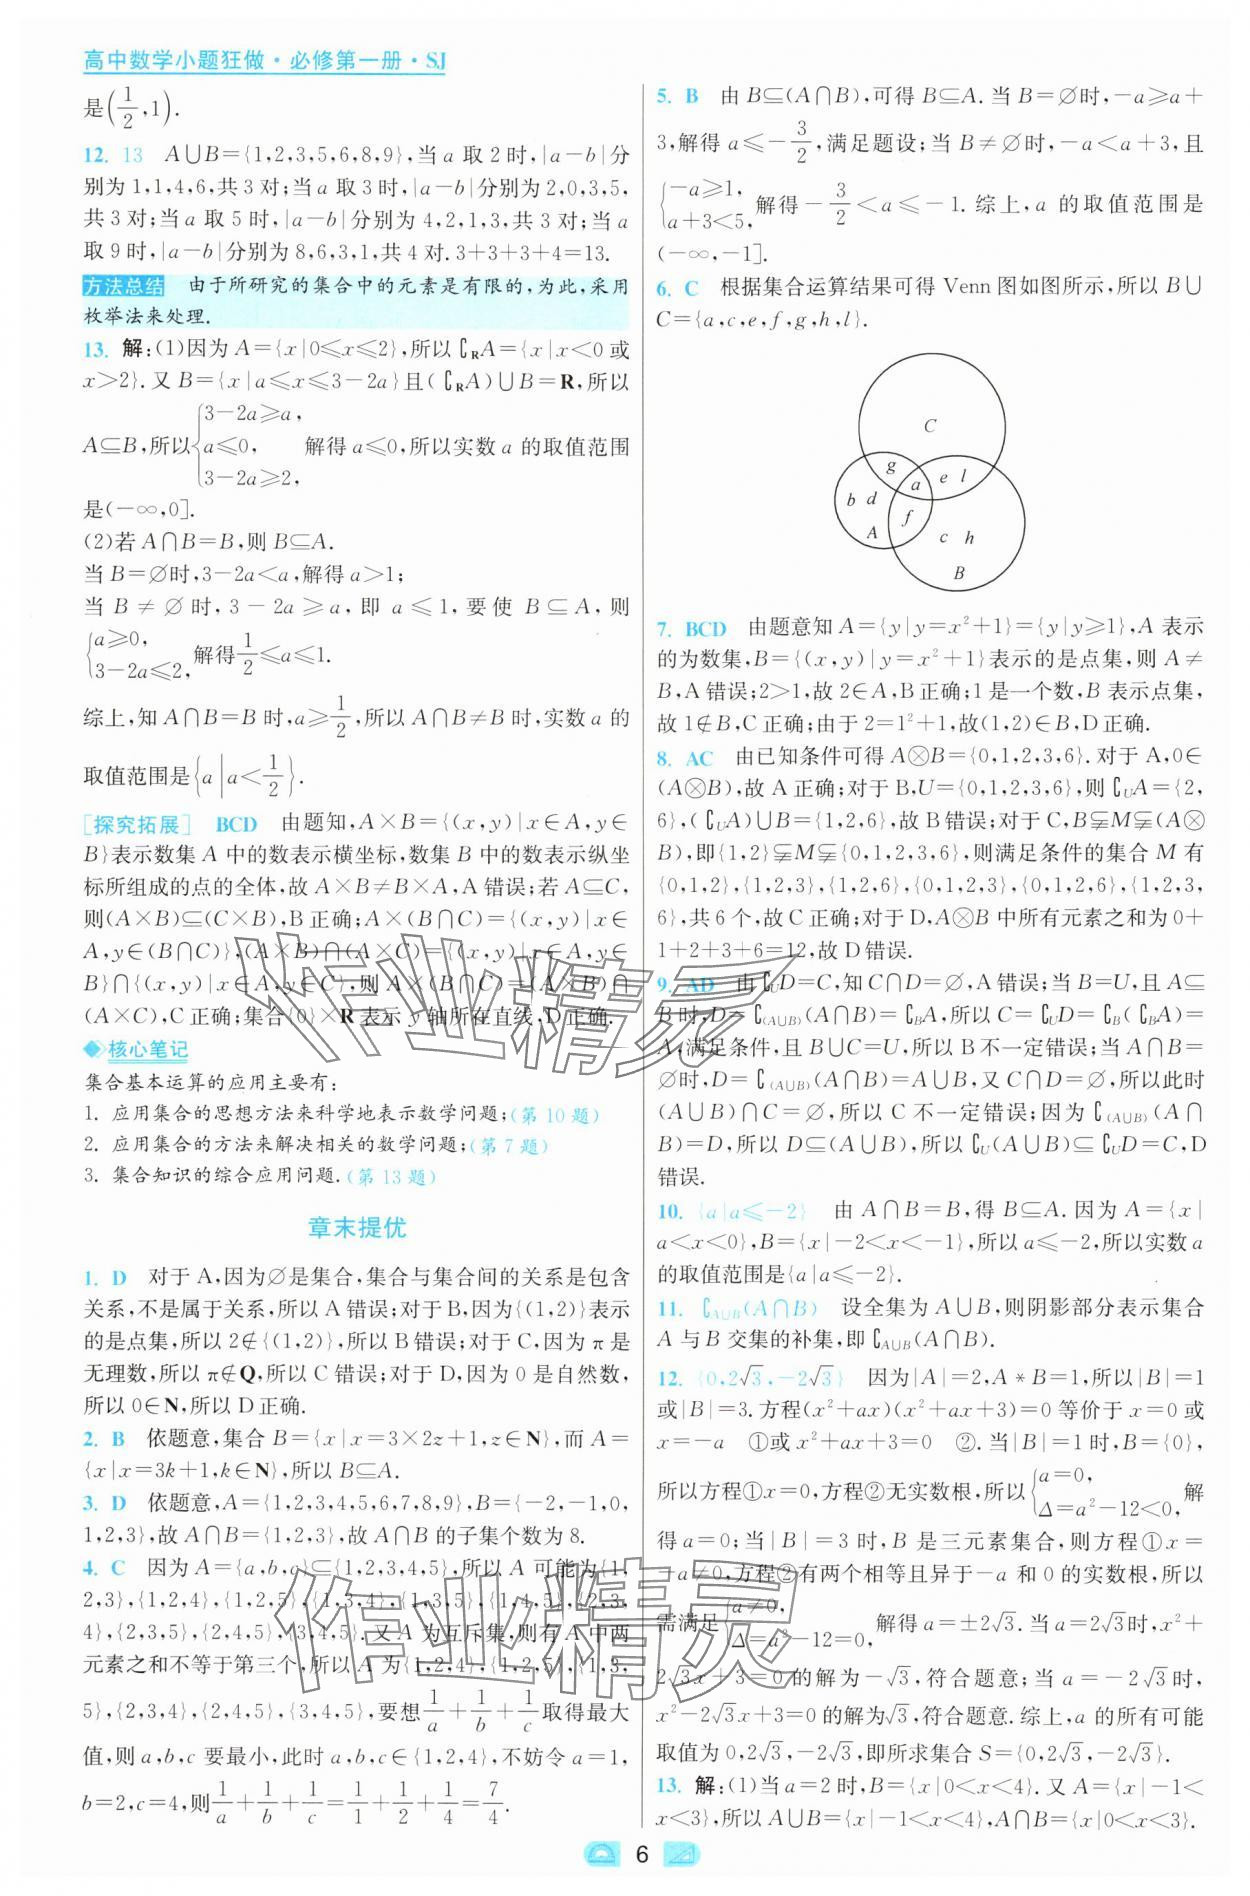 高中数学小题狂做·必修第一册·SJ
是(1/2,1).
12. 13　A∪B={1,2,3,5,6,8,9},当 a 取 2 时,|a-b|分
别为 1,1,4,6,共 3 对;当 a 取 3 时,|a-b|分别为 2,0,3,5,
共 3 对;当 a 取 5 时,|a-b|分别为 4,2,1,3,共 3 对;当 a
取 9 时,|a-b|分别为 8,6,3,1,共 4 对.3+3+3+4=13.
方法总结　由于所研究的集合中的元素是有限的,为此,采用
枚举法来处理.
13. 解:(1)因为 A={x|0≤x≤2},所以∁RA={x|x<0 或
x>2}.又 B={x|a≤x≤3-2a}且(∁RA)∪B=R,所以
A⊆B,所以{3-2a≥a, a≤0, 3-2a≥2, 解得 a≤0,所以实数 a 的取值范围
是(-∞,0].
(2)若 A∩B=B,则 B⊆A.
当 B=∅时,3-2a<a,解得 a>1;
当 B≠∅时,3-2a≥a,即 a≤1,要使 B⊆A,则
{a≥0, 3-2a≤2, 解得1/2≤a≤1.
综上,知 A∩B=B 时,a≥1/2,所以 A∩B≠B 时,实数 a 的
取值范围是{a|a<1/2}.
[探究拓展]　BCD　由题知,A×B={(x,y)|x∈A,y∈
B}表示数集 A 中的数表示横坐标,数集 B 中的数表示纵坐
标所组成的点的全体,故 A×B≠B×A,A 错误;若 A⊆C,
则(A×B)⊆(C×B),B 正确;A×(B∩C)={(x,y)|x∈
A,y∈(B∩C)},(A×B)∩(A×C)={(x,y)|x∈A,y∈
B}∩{(x,y)|x∈A,y∈C},则 A×(B∩C)=(A×B)∩
(A×C),C 正确;集合{0}×R 表示 y 轴所在直线,D 正确.
核心笔记
集合基本运算的应用主要有:
1. 应用集合的思想方法来科学地表示数学问题;(第 10 题)
2. 应用集合的方法来解决相关的数学问题;(第 7 题)
3. 集合知识的综合应用问题.(第 13 题)
章末提优
1. D　对于 A,因为∅是集合,集合与集合间的关系是包含
关系,不是属于关系,所以 A 错误;对于 B,因为{(1,2)}表示
的是点集,所以 2∉{(1,2)},所以 B 错误;对于 C,因为 π 是
无理数,所以 π∉Q,所以 C 错误;对于 D,因为 0 是自然数,
所以 0∈N,所以 D 正确.
2. B　依题意,集合 B={x|x=3×2z+1,z∈N},而 A=
{x|x=3k+1,k∈N},所以 B⊆A.
3. D　依题意,A={1,2,3,4,5,6,7,8,9},B={-2,-1,0,
1,2,3},故 A∩B={1,2,3},故 A∩B 的子集个数为 8.
4. C　因为 A={a,b,c}⊆{1,2,3,4,5},所以 A 可能为{1,
2,3},{1,2,4},{1,2,5},{1,3,4},{1,3,5},{1,4,5},{2,3,
4},{2,3,5},{2,4,5},{3,4,5}.又 A 为互斥集,则有 A 中两
元素之和不等于第三个,所以 A 为{1,2,4},{1,2,5},{1,3,
5},{2,3,4},{2,4,5},{3,4,5},要想1/a+1/b+1/c取得最大
值,则 a,b,c 要最小,此时 a,b,c∈{1,2,4},不妨令 a=1,
b=2,c=4,则1/a+1/b+1/c=1/1+1/2+1/4=7/4.
5. B　由 B⊆(A∩B),可得 B⊆A.当 B=∅时,-a≥a+
3,解得 a≤-3/2,满足题设;当 B≠∅时,-a<a+3,且
{-a≥1, a+3<5, 解得-3/2<a≤-1.综上,a 的取值范围是
(-∞,-1].
6. C　根据集合运算结果可得 Venn 图如图所示,所以 B∪
C={a,c,e,f,g,h,l}.
C
g
e l
a
b d
f
A
c h
B
7. BCD　由题意知 A={y|y=x²+1}={y|y≥1},A 表示
的为数集,B={(x,y)|y=x²+1}表示的是点集,则 A≠
B,A 错误;2>1,故 2∈A,B 正确;1 是一个数,B 表示点集,
故 1∉B,C 正确;由于 2=1²+1,故(1,2)∈B,D 正确.
8. AC　由已知条件可得 A⊗B={0,1,2,3,6}.对于 A,0∈
(A⊗B),故 A 正确;对于 B,U={0,1,2,3,6},则∁UA={2,
6},(∁UA)∪B={1,2,6},故 B 错误;对于 C,B⫋M⫋(A⊗
B),即{1,2}⫋M⫋{0,1,2,3,6},则满足条件的集合 M 有
{0,1,2},{1,2,3},{1,2,6},{0,1,2,3},{0,1,2,6},{1,2,3,
6},共 6 个,故 C 正确;对于 D,A⊗B 中所有元素之和为 0+
1+2+3+6=12,故 D 错误.
9. AD　由∁UD=C,知 C∩D=∅,A 错误;当 B=U,且 A⊆
B 时,D=∁(A∪B)(A∩B)=∁BA,所以 C=∁UD=∁B(∁BA)=
A,满足条件,且 B∪C=U,所以 B 不一定错误;当 A∩B=
∅时,D=∁(A∪B)(A∩B)=A∪B,又 C∩D=∅,所以此时
(A∪B)∩C=∅,所以 C 不一定错误;因为∁(A∪B)(A∩
B)=D,所以 D⊆(A∪B),所以∁U(A∪B)⊆∁UD=C,D
错误.
10. {a|a≤-2}　由 A∩B=B,得 B⊆A.因为 A={x|
a<x<0},B={x|-2<x<-1},所以 a≤-2,所以实数 a
的取值范围是{a|a≤-2}.
11. ∁A∪B(A∩B)　设全集为 A∪B,则阴影部分表示集合
A 与 B 交集的补集,即∁A∪B(A∩B).
12. {0,2√3,-2√3}　因为|A|=2,A*B=1,所以|B|=1
或|B|=3.方程(x²+ax)(x²+ax+3)=0 等价于 x=0 或
x=-a　①或 x²+ax+3=0　②.当|B|=1 时,B={0},
所以方程①x=0,方程②无实数根,所以{a=0, Δ=a²-12<0, 解
得 a=0;当|B|=3 时,B 是三元素集合,则方程①x=
-a≠0,方程②有两个相等且异于-a 和 0 的实数根,所以
需满足{a≠0, Δ=a²-12=0, 解得 a=±2√3.当 a=2√3时,x²+
2√3x+3=0 的解为-√3,符合题意;当 a=-2√3时,
x²-2√3x+3=0 的解为√3,符合题意.综上,a 的所有可能
取值为 0,2√3,-2√3,即所求集合 S={0,2√3,-2√3}.
13. 解:(1)当 a=2 时,B={x|0<x<4}.又 A={x|-1<
x<3},所以 A∪B={x|-1<x<4},A∩B={x|0<x<3}.
6
作业精灵
作业精灵